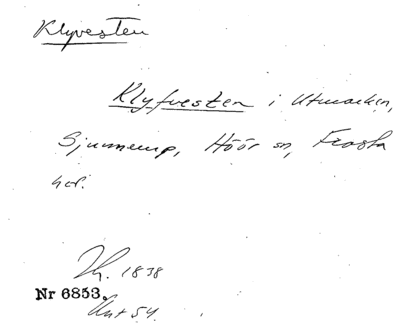 Klyvesten
Klyfvesten i Utmarken,
Sjunnerup, Höör sn, Frosta
hd.
1838
Nr 6853.
54.